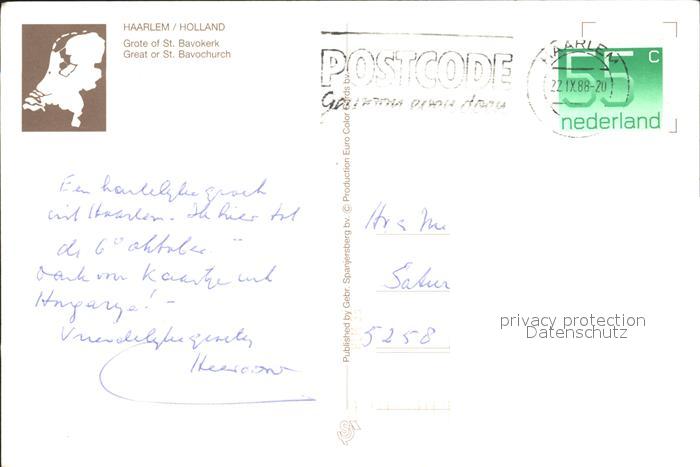 HAARLEM / HOLLAND
Grote of St. Bavokerk
Great or St. Bavochurch
POSTCODE
HAARLEM
22.IX.88-20
55 c
nederland
Een hartelijke groet
uit Haarlem. Ik hier tot
de 6e oktober.
Dank voor kaartje uit
Hongarye! -
Vriendelijke groeten
Published by Gebr. Spanjersberg bv. © Production Euro Color Cards bv
5258
privacy protection
Datenschutz